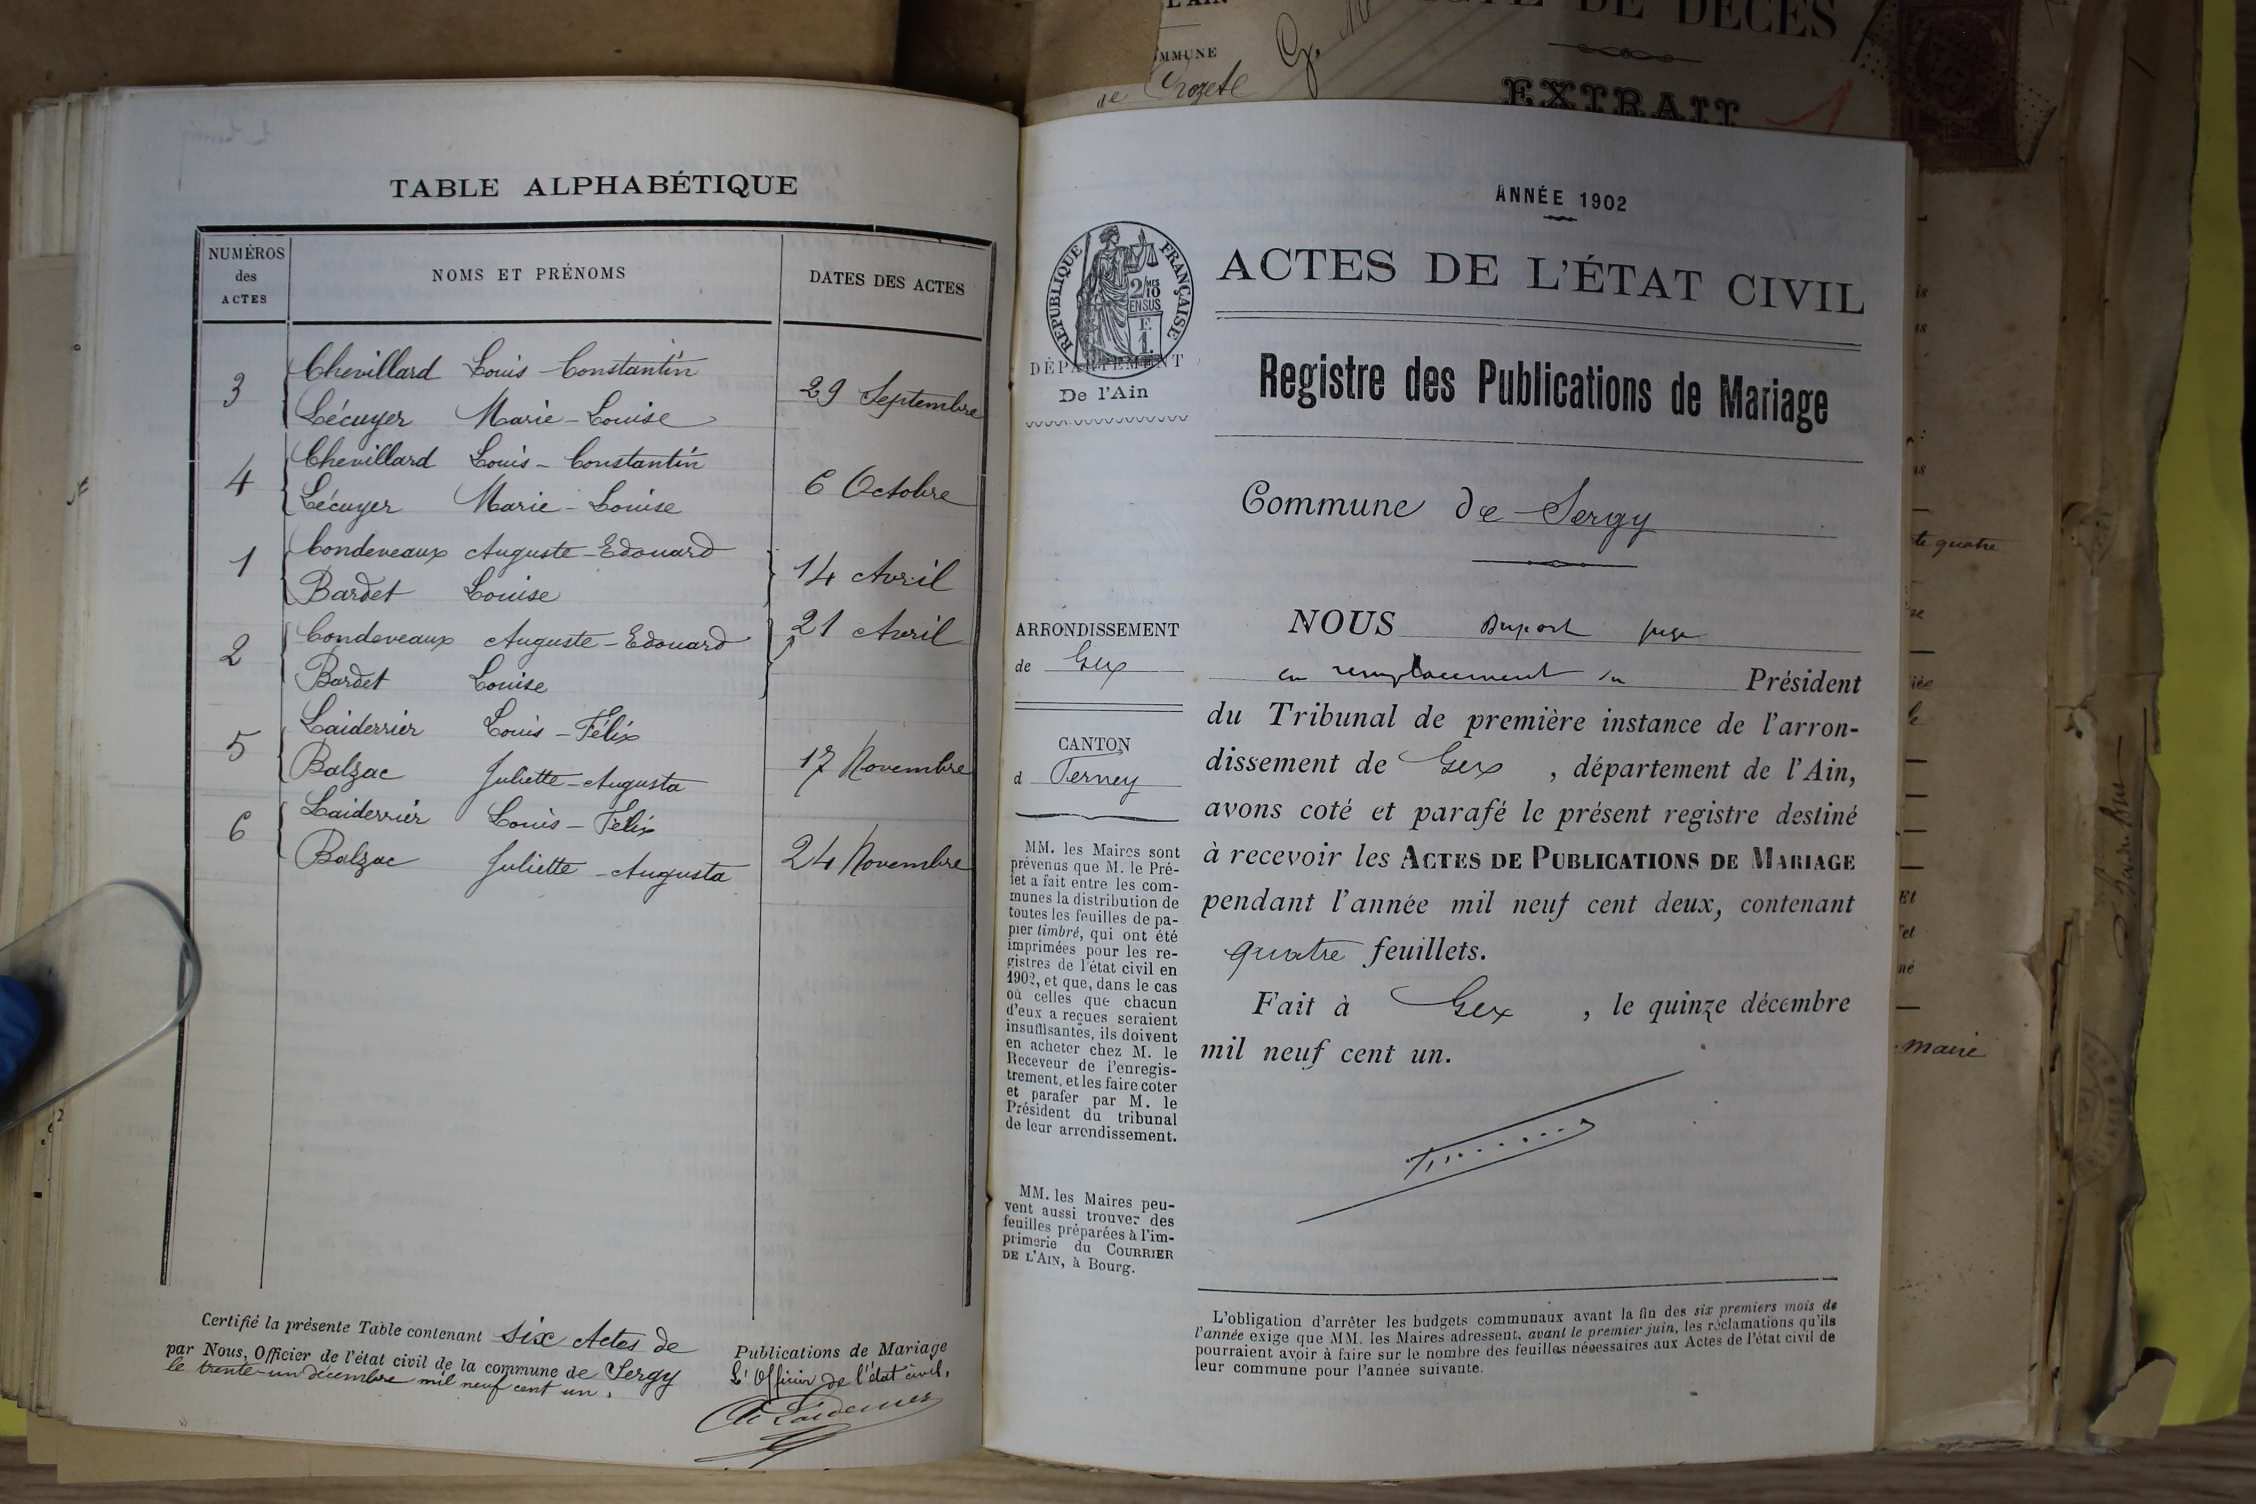 L'AIN
COMMUNE
de Crozet
DE DÉCÈS
EXTRAIT
TABLE ALPHABÉTIQUE
NUMÉROS
des
ACTES
NOMS ET PRÉNOMS
DATES DES ACTES
3 Chevillard Louis-Constantin
Lécuyer Marie-Louise
29 Septembre
4 Chevillard Louis-Constantin
Lécuyer Marie-Louise
6 Octobre
1 Condeveaux Auguste-Edouard
Bardet Louise
14 Avril
2 Condeveaux Auguste-Edouard
Bardet Louise
21 Avril
5 Laiderrier Louis-Félix
Balzac Juliette-Augusta
17 Novembre
6 Laiderrier Louis-Félix
Balzac Juliette-Augusta
24 Novembre
Certifié la présente Table contenant six Actes de Publications de Mariage
par Nous, Officier de l'état civil de la commune de Sergy
le trente-un décembre mil neuf cent un.
L'Officier de l'état civil,
Laiderrier
ANNÉE 1902
RÉPUBLIQUE FRANÇAISE
2/10
MES
EN SUS
F.
1.
ACTES DE L'ÉTAT CIVIL
DÉPARTEMENT
De l'Ain
Registre des Publications de Mariage
Commune de Sergy
ARRONDISSEMENT
de Gex
CANTON
d Ferney
MM. les Maires sont
prévenus que M. le Pré-
fet a fait entre les com-
munes la distribution de
toutes les feuilles de pa-
pier timbré, qui ont été
imprimées pour les re-
gistres de l'état civil en
1902, et que, dans le cas
où celles que chacun
d'eux a reçues seraient
insuffisantes, ils doivent
en acheter chez M. le
Receveur de l'enregis-
trement, et les faire coter
et parafer par M. le
Président du tribunal
de leur arrondissement.
MM. les Maires peu-
vent aussi trouver des
feuilles préparées à l'im-
primerie du COURRIER
DE L'AIN, à Bourg.
NOUS Duport juge
en remplacement du Président
du Tribunal de première instance de l'arron-
dissement de Gex, département de l'Ain,
avons coté et parafé le présent registre destiné
à recevoir les ACTES DE PUBLICATIONS DE MARIAGE
pendant l'année mil neuf cent deux, contenant
quatre feuillets.
Fait à Gex, le quinze décembre
mil neuf cent un.
L'obligation d'arrêter les budgets communaux avant la fin des six premiers mois de
l'année exige que MM. les Maires adressent, avant le premier juin, les réclamations qu'ils
pourraient avoir à faire sur le nombre des feuilles nécessaires aux Actes de l'état civil de
leur commune pour l'année suivante.
quatre
maire